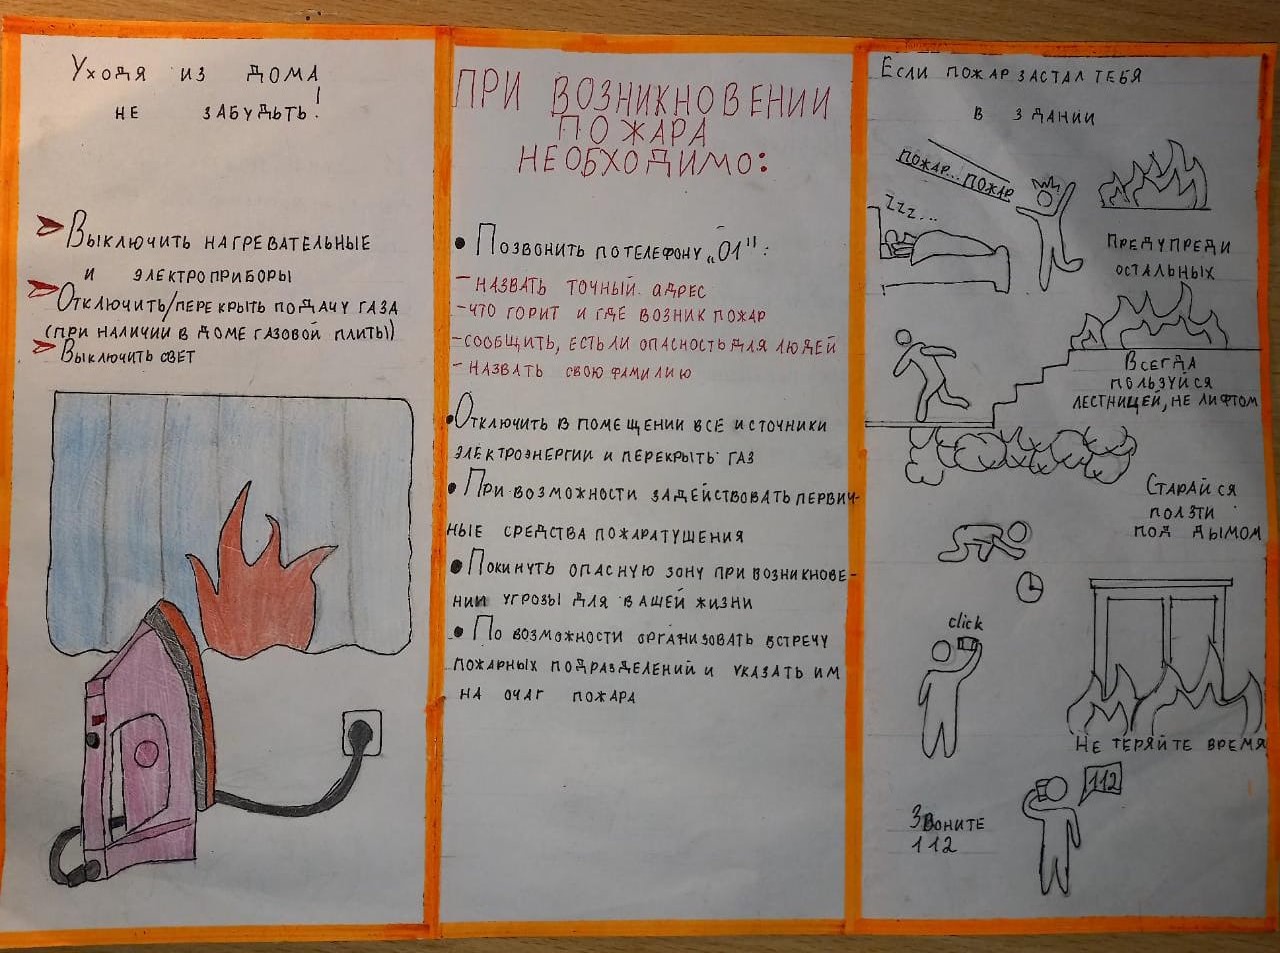 Уходя из дома
не забудьть!
Выключить нагревательные
и электроприборы
Отключить/перекрыть подачу газа
(при наличии в доме газовой плиты)
Выключить свет
ПРИ ВОЗНИКНОВЕНИИ
ПОЖАРА
НЕОБХОДИМО:
• Позвонить по телефону „01":
- назвать точный адрес
- что горит и где возник пожар
- сообщить, есть ли опасность для людей
- назвать свою фамилию
• Отключить в помещении все источники
электроэнергии и перекрыть газ
• При возможности задействовать первич-
ные средства пожаратушения
• Покинуть опасную зону при возникнове-
нии угрозы для вашей жизни
• По возможности организовать встречу
пожарных подразделений и указать им
на очаг пожара
Если пожар застал тебя
в здании
пожар... пожар
Zzz...
Предупреди
остальных
Всегда
пользуйся
лестницей, не лифтом
Старайся
ползти
под дымом
click
Не теряйте время
112
Звоните
112